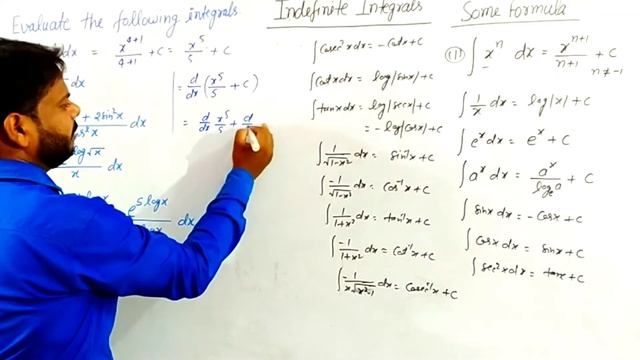 Evaluate the following integrals
dx = x^{4+1}/4+1 + C = x^5/5 + C
dx
= d/dx (x^5/5 + C)
+ 2sin²x / cos²x dx
= d/dx x^5/5 + d
log√x / x dx
e^{5logx}
dx
Indefinite Integrals
∫cosec²xdx = -cotx+C
∫cotxdx = log|sinx|+C
∫tanxdx = log|secx|+C
= -log|cosx|+C
∫1/√1-x² dx = sin⁻¹x+C
∫-1/√1-x² dx = cos⁻¹x+C
∫1/1+x² dx = tan⁻¹x+C
∫-1/1+x² dx = cot⁻¹x+C
∫-1/x√x²-1 dx = cosec⁻¹x+C
Some formula
(1) ∫x^n dx = x^{n+1}/n+1 + C
n≠-1
∫1/x dx = log|x|+C
∫e^x dx = e^x + C
∫a^x dx = a^x/log_e a + C
∫sinxdx = -cosx+C
∫cosxdx = sinx+C
∫sec²xdx = tanx+C